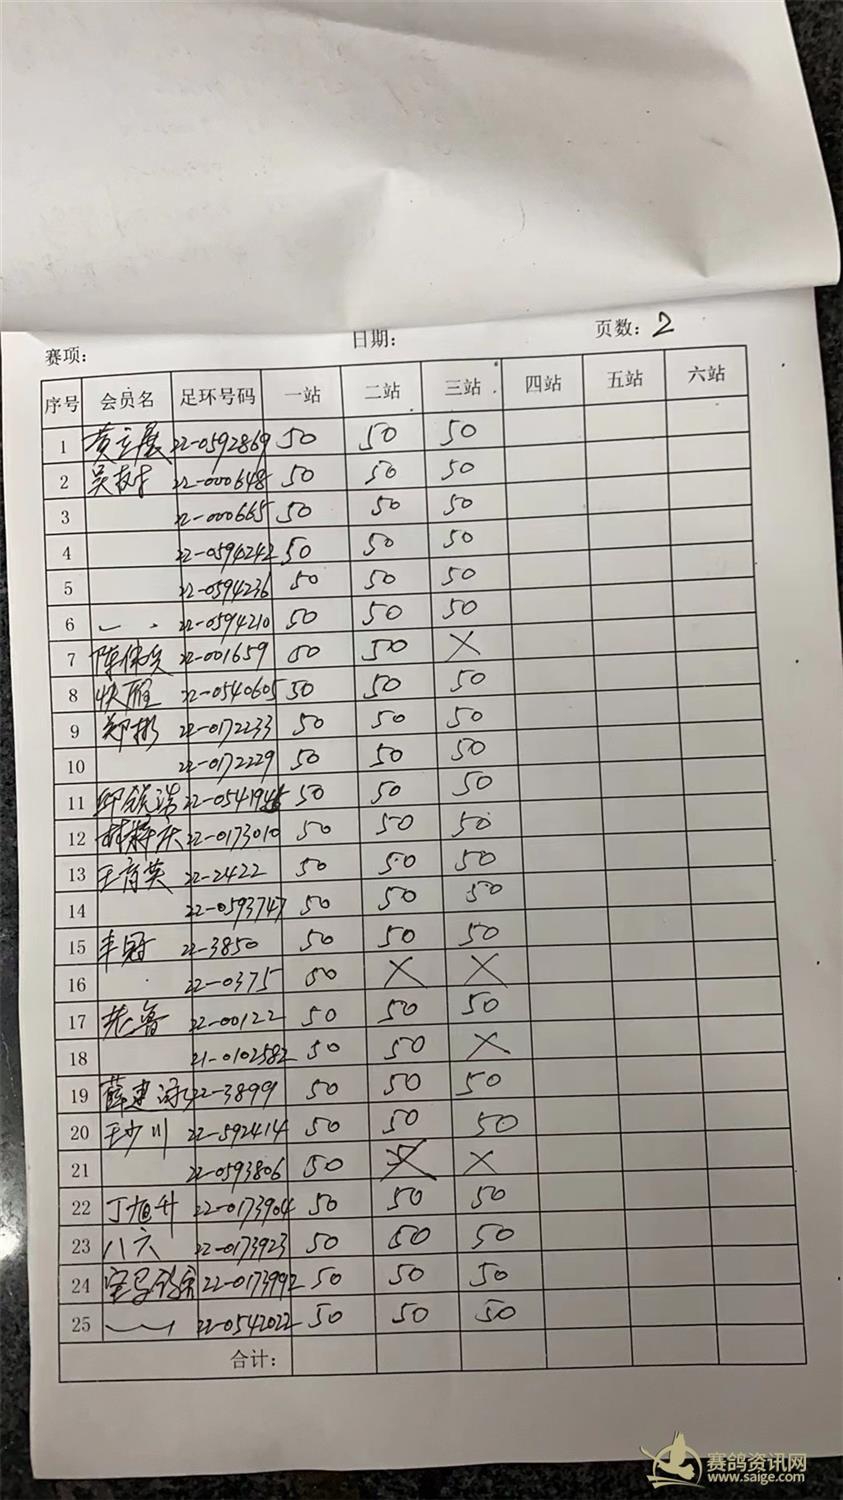 赛项: 日期: 页数: 2
序号 会员名 足环号码 一站 二站 三站 四站 五站 六站
1 黄立展 22-0592869 50 50 50
2 吴树 22-000648 50 50 50
3 22-000665 50 50 50
4 22-0594242 50 50 50
5 22-0594236 50 50 50
6 22-0594210 50 50 50
7 22-001659 50 50 X
8 快雁 22-0540605 50 50 50
9 郑彬 22-0172233 50 50 50
10 22-0172229 50 50 50
11 50 50 50
12 22-0173010 50 50 50
13 王育英 22-2422 50 50 50
14 22-0593747 50 50 50
15 丰冠 22-3850 50 50 50
16 22-0375 50 X X
17 22-00122 50 50 50
18 21-0102582 50 50 X
19 22-3899 50 50 50
20 王少川 22-592414 50 50 50
21 22-0593806 50 X
22 丁旭升 22-0173904 50 50 50
23 八六 22-0173923 50 50 50
24 22-0173992 50 50 50
25 22-0542022 50 50 50
合计:
赛鸽资讯网
www.saige.com